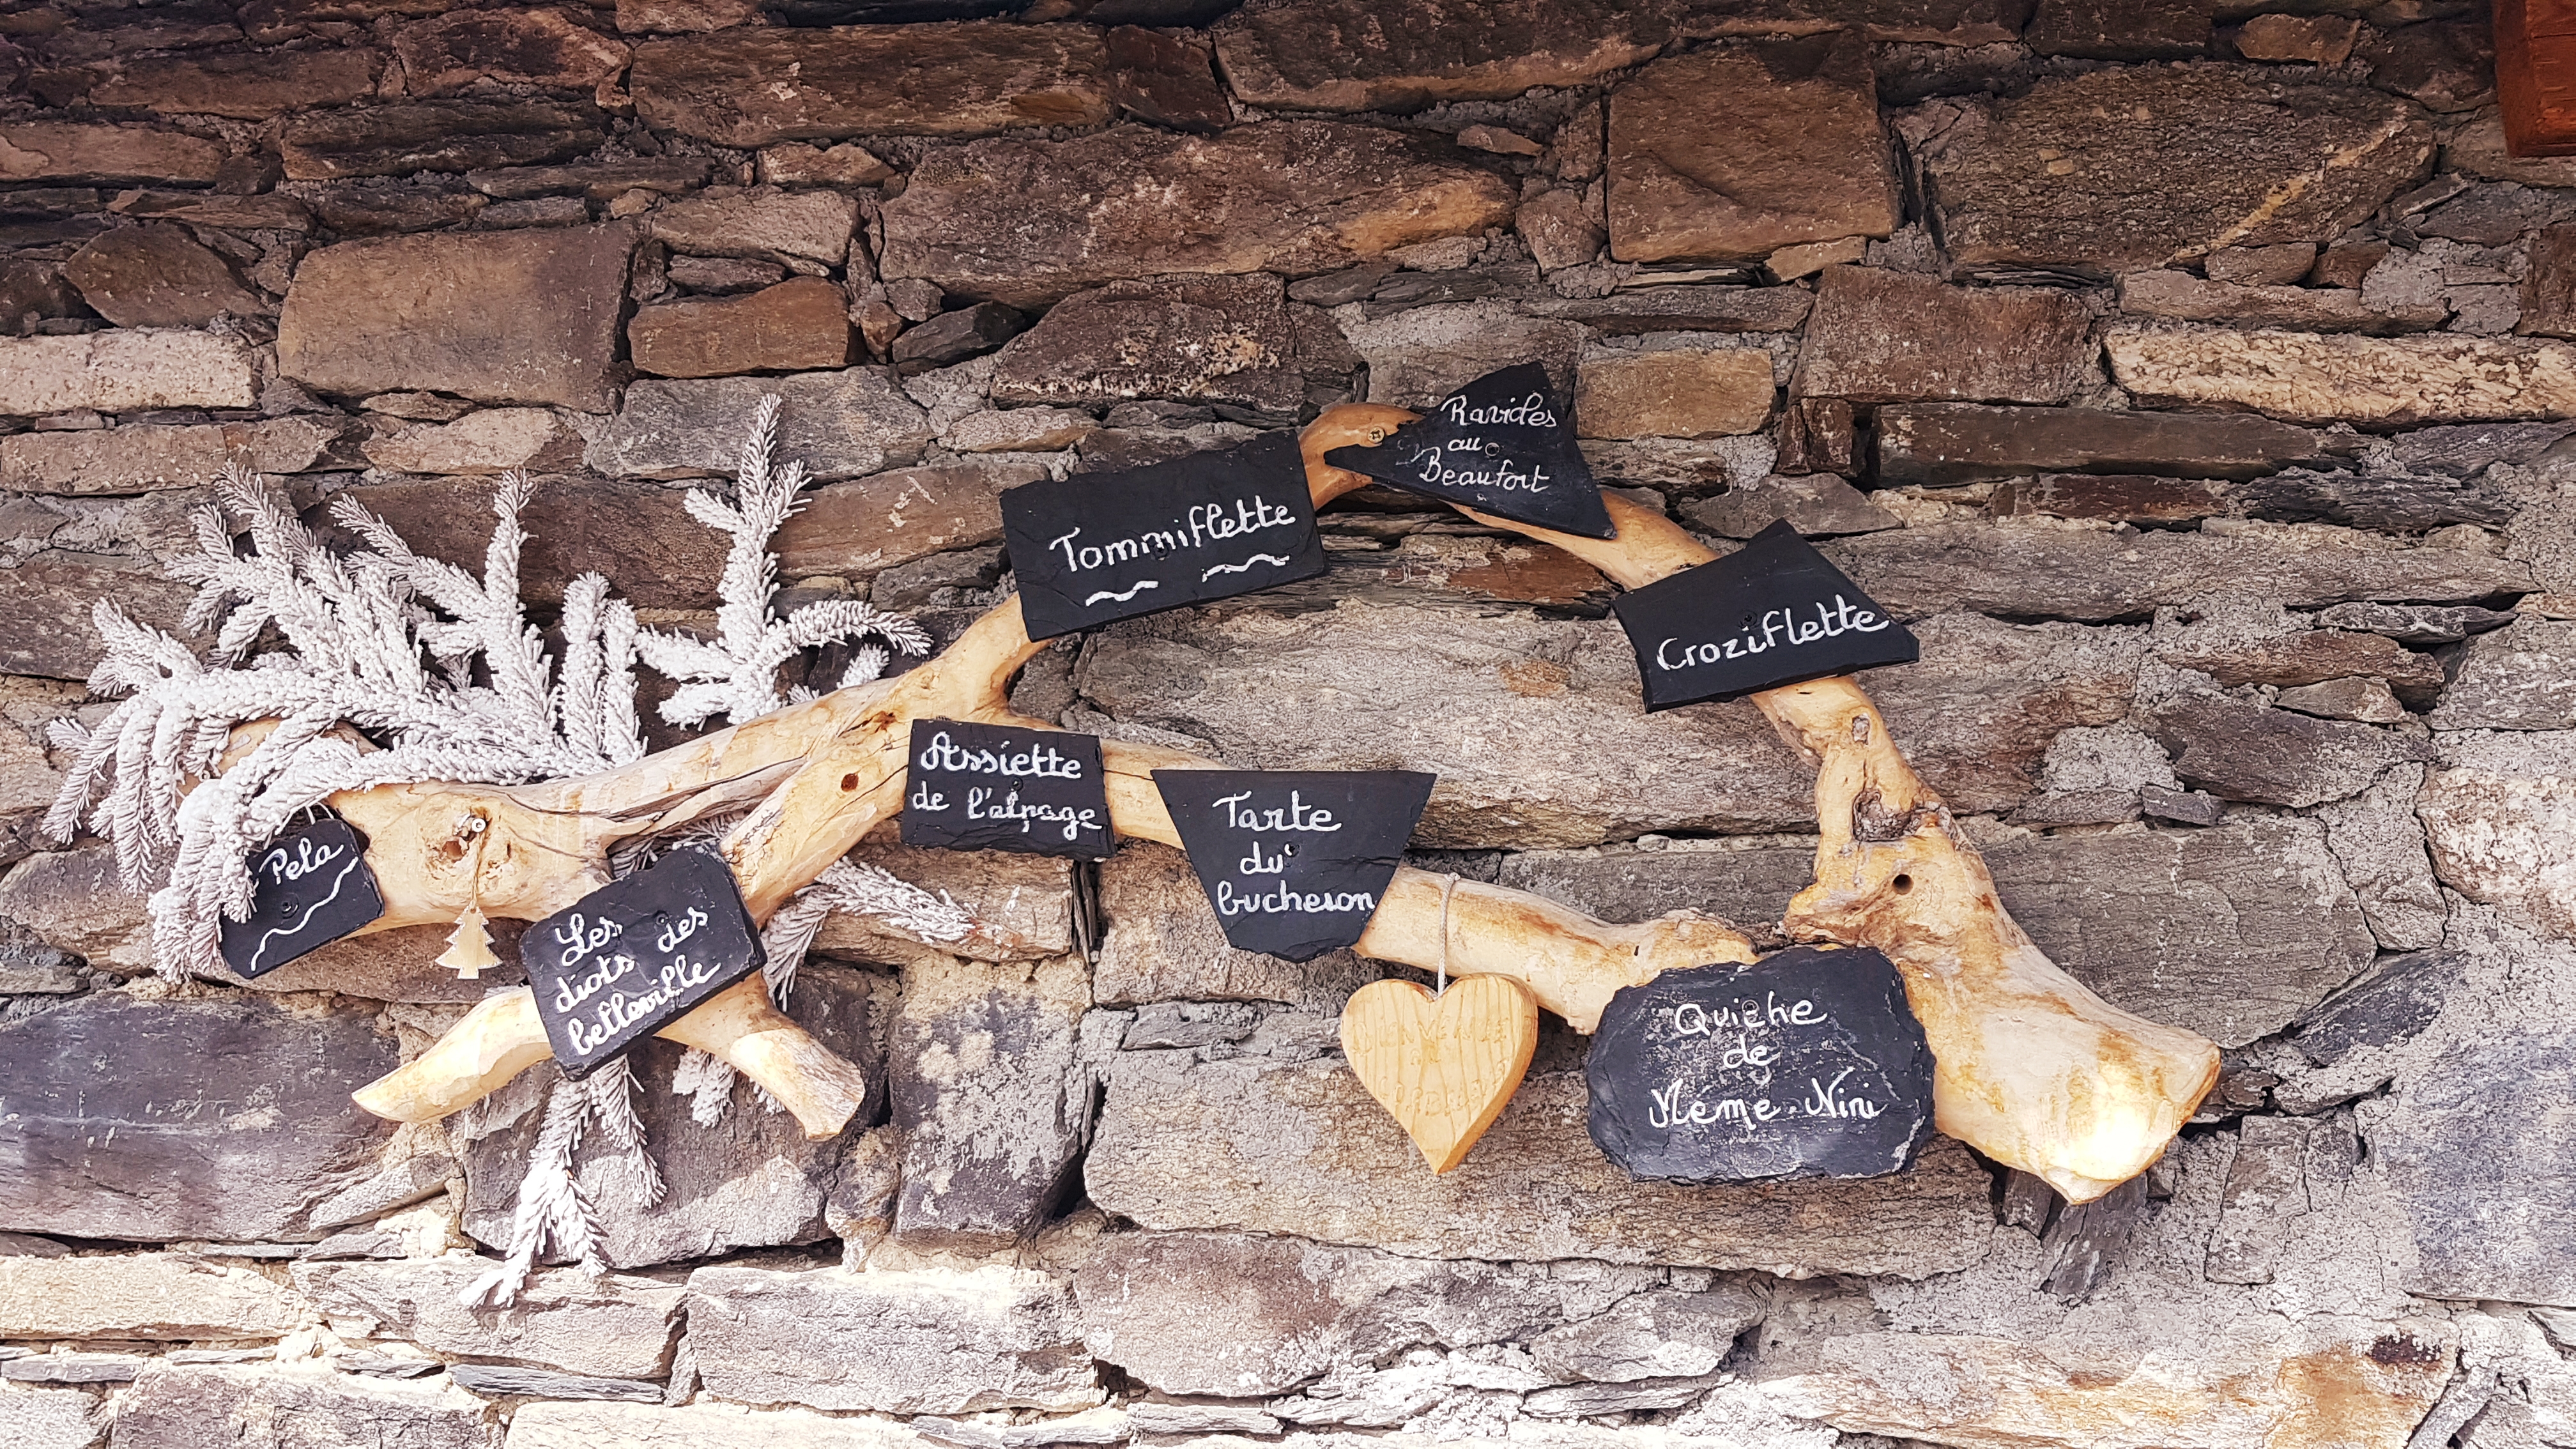 Ravioles
au
Beaufort
Tommiflette
Croziflette
Assiette
de l'alpage
Tarte
du
bucheron
Pela
Les
diots des
belleville
Quiche
de
Mémé Nini